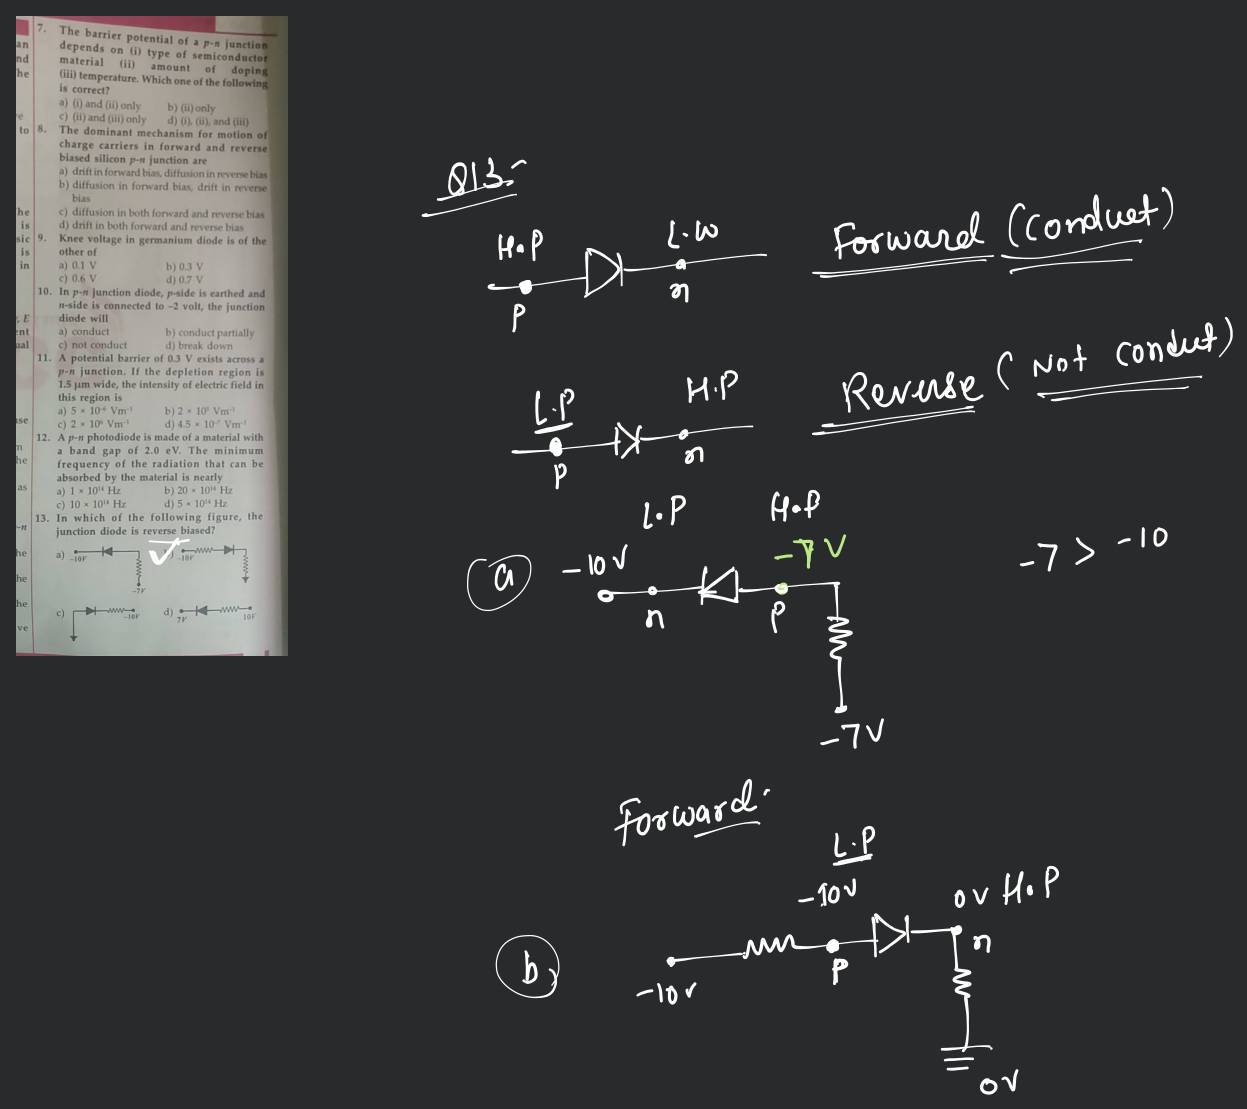 7. The barrier potential of a p-n junction
depends on (i) type of semiconductor
material (ii) amount of doping
(iii) temperature. Which one of the following
is correct?
a) (i) and (ii) only b) (ii) only
c) (ii) and (iii) only d) (i), (ii), and (iii)
8. The dominant mechanism for motion of
charge carriers in forward and reverse
biased silicon p-n junction are
a) drift in forward bias, diffusion in reverse bias
b) diffusion in forward bias, drift in reverse
bias
c) diffusion in both forward and reverse bias
d) drift in both forward and reverse bias
9. Knee voltage in germanium diode is of the
other of
a) 0.1 V b) 0.3 V
c) 0.6 V d) 0.7 V
10. In p-n junction diode, p-side is earthed and
n-side is connected to -2 volt, the junction
diode will
a) conduct b) conduct partially
c) not conduct d) break down
11. A potential barrier of 0.3 V exists across a
p-n junction. If the depletion region is
1.5 μm wide, the intensity of electric field in
this region is
a) 5 × 10⁻⁶ Vm⁻¹ b) 2 × 10⁵ Vm⁻¹
c) 2 × 10⁶ Vm⁻¹ d) 4.5 × 10⁻⁷ Vm⁻¹
12. A p-n photodiode is made of a material with
a band gap of 2.0 eV. The minimum
frequency of the radiation that can be
absorbed by the material is nearly
a) 1 × 10¹⁴ Hz b) 20 × 10¹⁴ Hz
c) 10 × 10¹⁴ Hz d) 5 × 10¹⁴ Hz
13. In which of the following figure, the
junction diode is reverse biased?
a) -10V -7V -10V
c) -10V d) 7V 10V
an
nd
he
to
he
is
sic
is
in
E
ent
ual
use
he
as
-n
he
he
he
ve
Q13:-
H.P L.W
P n
Forward (Conduct)
L.P H.P
P n
Reverse (Not conduct)
L.P H.P
a -10V -7V
n P
-7V
-7 > -10
Forward.
L.P
-10V 0V H.P
b) -10V P n
0V